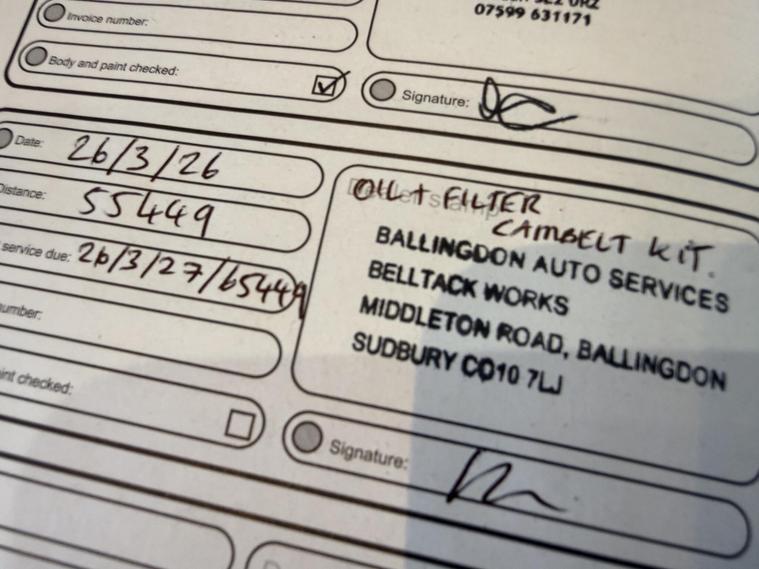 07599 631171
Invoice number:
Body and paint checked:
Signature:
Date: 26/3/26
Distance: 55449
service due: 26/3/27/65449
number:
int checked:
Dealer stamp
OIL + FILTER
CAMBELT KIT.
BALLINGDON AUTO SERVICES
BELLTACK WORKS
MIDDLETON ROAD, BALLINGDON
SUDBURY CO10 7LJ
Signature: